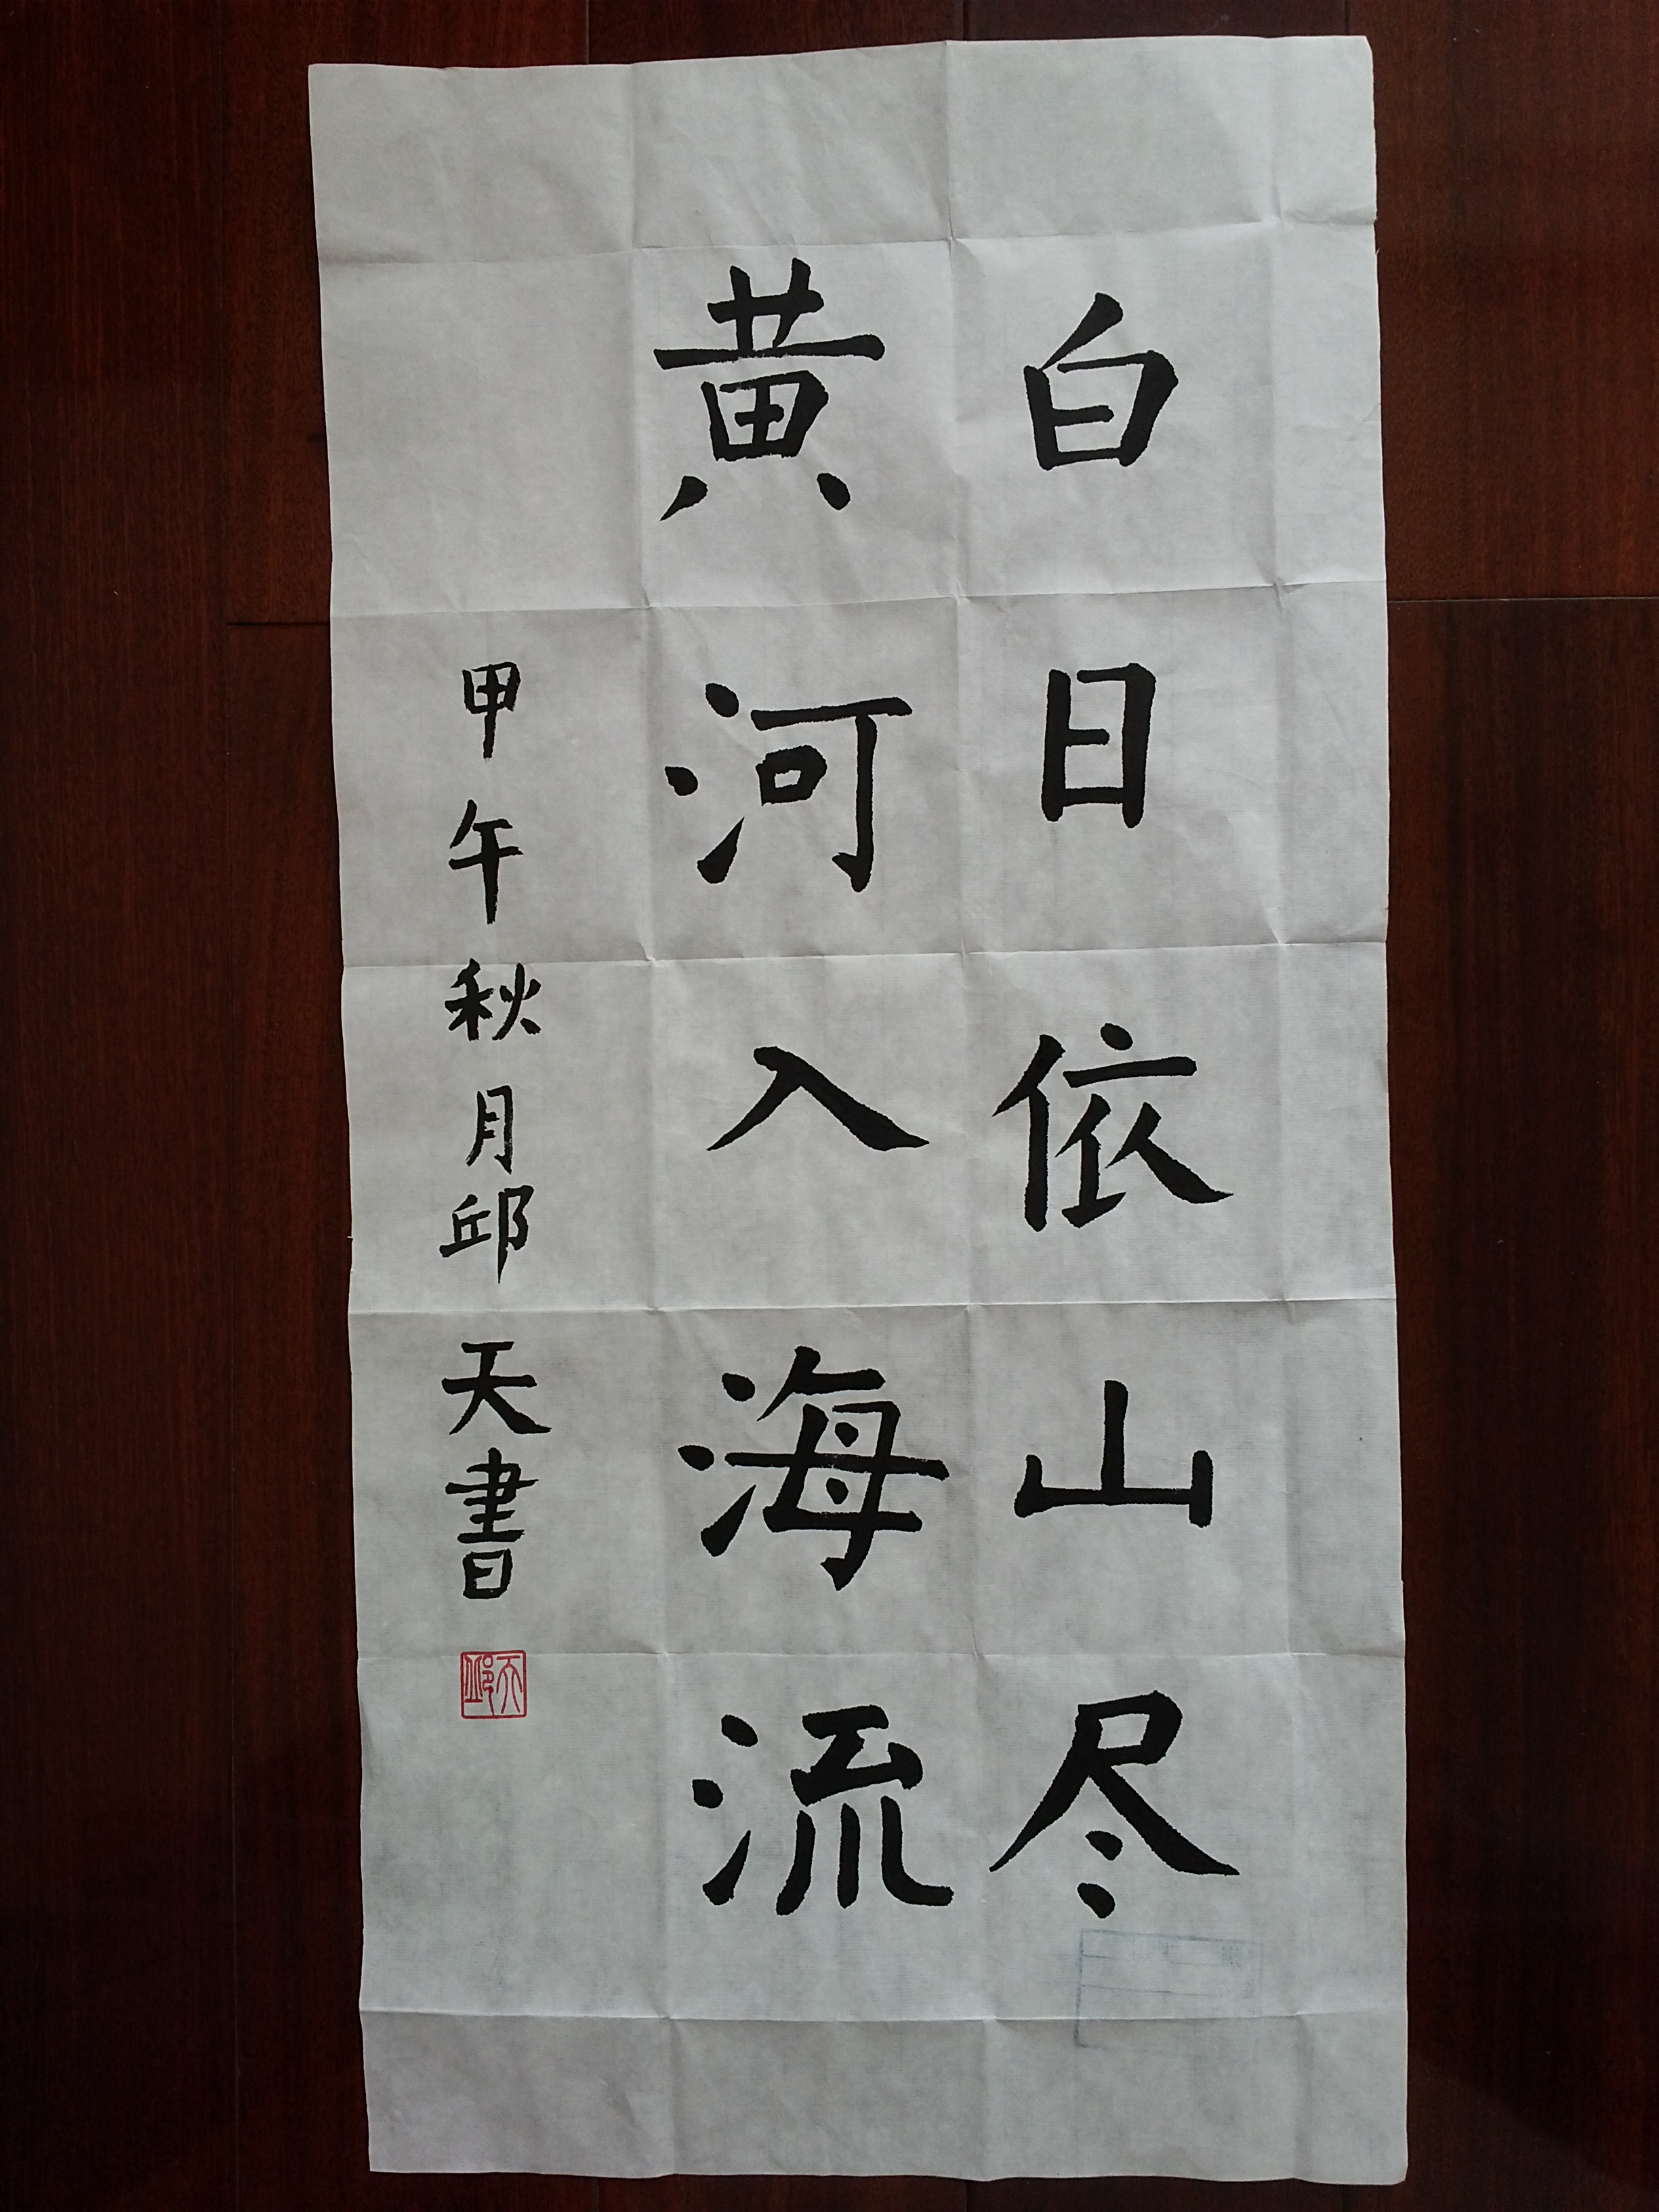 白日依山尽
黄河入海流
甲午秋月邱天書
邱天